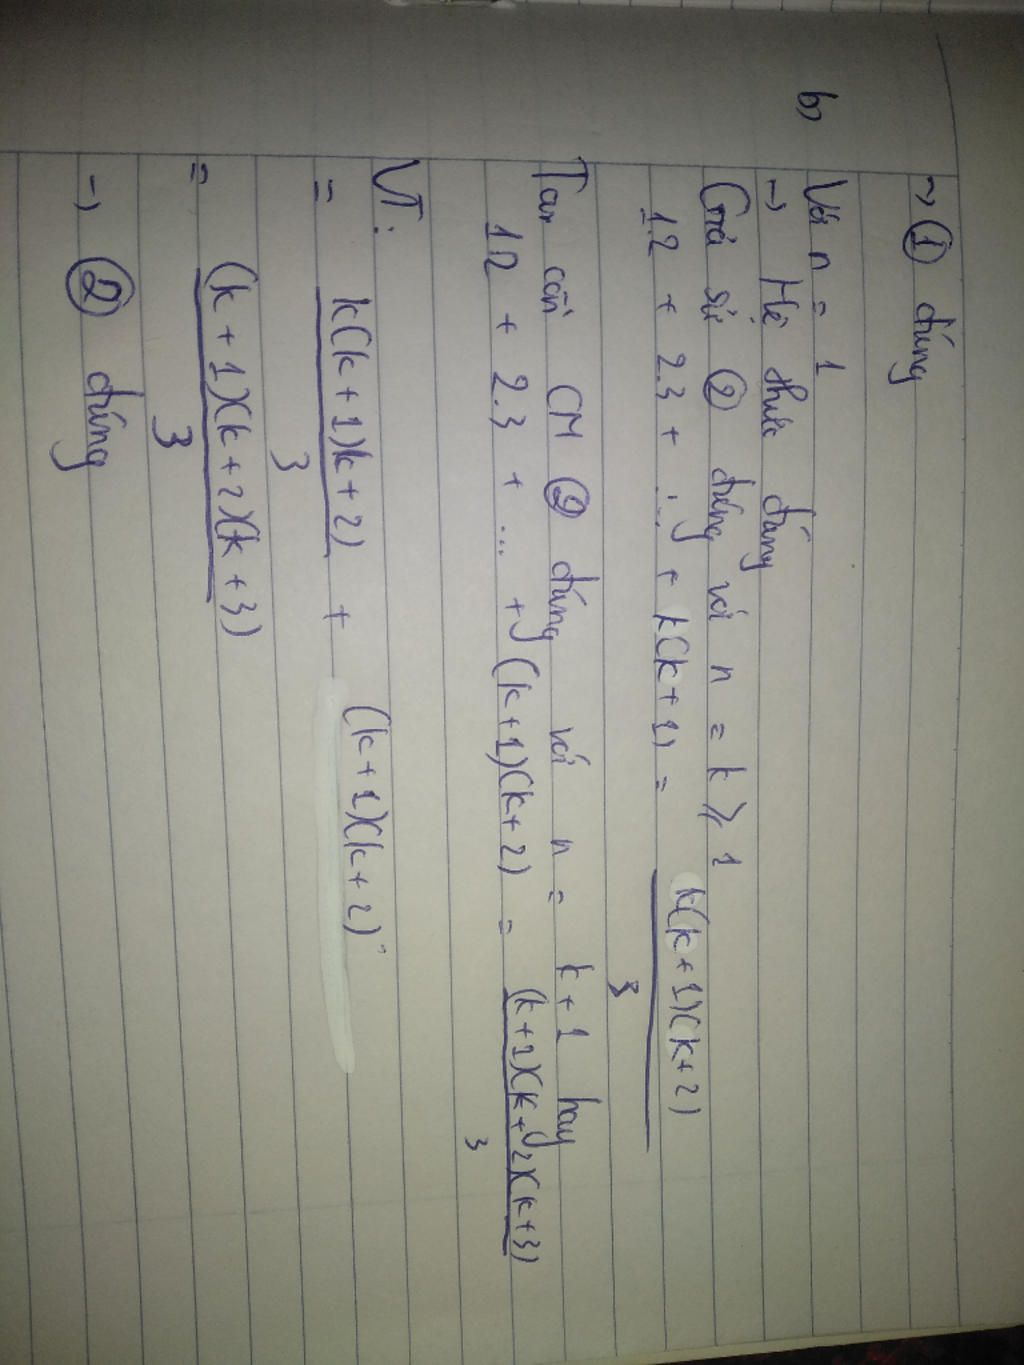 → ① đúng
b) Với n = 1
→ Hệ thức đúng
Giả sử ② đúng với n = k ⩾ 1
1.2 + 2.3 + ... + k(k+1) = k(k+1)(k+2)
3
Ta cần CM ② đúng với n = k+1 hay
1.2 + 2.3 + ... + (k+1)(k+2) = (k+1)(k+2)(k+3)
3
VT:
= k(k+1)k+2) + (k+1)(k+2)
3
= (k+1)(k+2)(k+3)
3
→ ② đúng